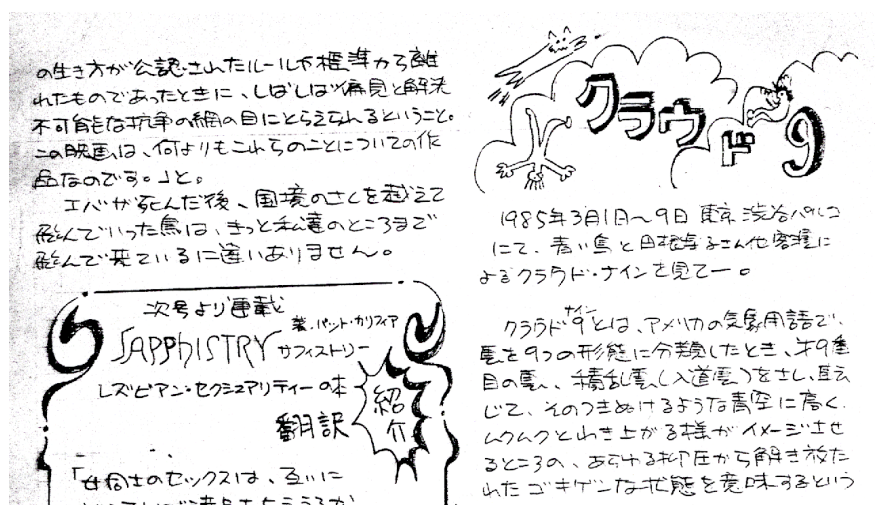 の生き方が公認されたルールや標準から離
れたものであったときに、しばしば偏見と解決
不可能な抗争の網の目にとらえられるということ。
この映画は、何よりもこれらのことについての作
品なのです。」と。
エバが死んだ後、国境のさくを越えて
飛んでいった鳥は、きっと私達のところまで
飛んで来ているに違いありません。
次号より連載
著・パット・カリフィア
SAPPHISTRY サフィストリー
レズビアン・セクシュアリティーの本
翻訳
紹介
「女同士のセックスは、互いに
クラウド9
1985年3月1日〜9日 東京 渋谷パルコ
にて、青い鳥と
よるクラウド・ナインを見てー。
クラウド9とは、アメリカの気象用語で、
ナイン
雲を9つの形態に分類したとき、才9番
目の雲、積乱雲(入道雲)をさし、転
じて、そのつきぬけるような青空に高く
ムクムクとわき上がる様がイメージさせ
るところの、あらゆる抑圧から解き放た
れたゴキゲンな状態を意味するという